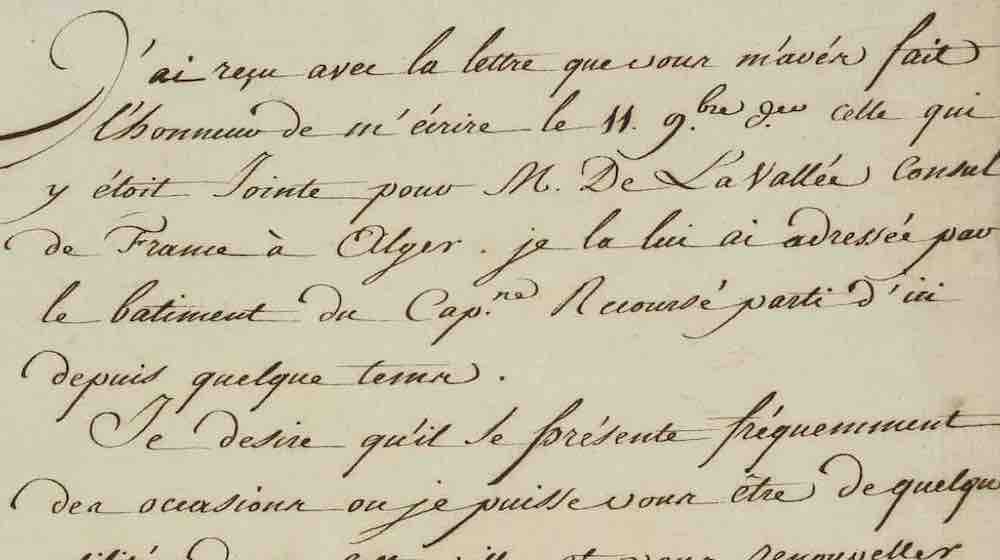 J'ai reçu avec la lettre que vous m'avés fait
l'honneur de m'écrire le 11. 9.bre d.er celle qui
y étoit Jointe pour M. De LaVallée Consul
de France à Alger. je la lui ai adressée par
le batiment du Cap.ne Recoursé parti d'ici
depuis quelque tems.
Je desire qu'il se présente fréquemment
des occasions ou je puisse vous être de quelqu
ville et vous renouveller